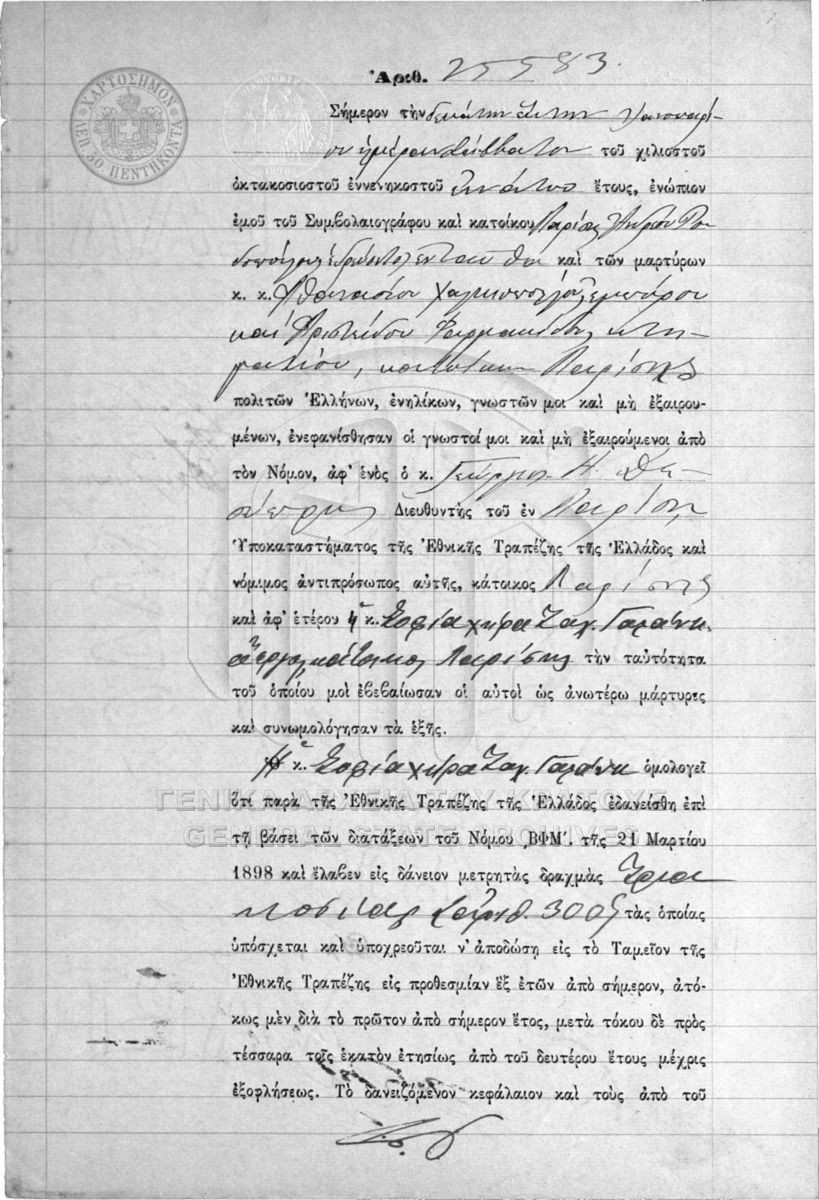 ΧΑΡΤΟΣΗΜΟΝ
ΛΕΠ. 50. ΠΕΝΤΗΚΟΝΤΑ
Ἀριθ. 25583.
Σήμερον τὴν δεκάτην ἕκτην Ἰανουαρί-
ου ἡμέραν Σάββατον τοῦ χιλιοστοῦ
ὀκτακοσιοστοῦ ἐννενηκοστοῦ ἐννάτου ἔτους, ἐνώπιον
ἐμοῦ τοῦ Συμβολαιογράφου καὶ κατοίκου Λαρίσης Ἀνδρέου Ῥο-
δοπούλου ἑδρεύοντος ἐνταῦθα καὶ τῶν μαρτύρων
κ. κ. Ἀθανασίου
καὶ Ἀριστείδου Φαρμακίδου κτη-
ματίου, κατοίκων Λαρίσης
πολιτῶν Ἑλλήνων, ἐνηλίκων, γνωστῶν μοι καὶ μὴ ἐξαιρου-
μένων, ἐνεφανίσθησαν οἱ γνωστοί μοι καὶ μὴ ἐξαιρούμενοι ἀπὸ
τὸν Νόμον, ἀφ' ἑνὸς ὁ κ. Γεώργιος Η.
Διευθυντὴς τοῦ ἐν Λαρίσῃ
Ὑποκαταστήματος τῆς Ἐθνικῆς Τραπέζης τῆς Ἑλλάδος καὶ
νόμιμος ἀντιπρόσωπος αὐτῆς, κάτοικος Λαρίσης
καὶ ἀφ' ἑτέρου ἡ κ. Σοφία χήρα Ζαχ. Γαλάνη
ἄεργος κάτοικος Λαρίσης τὴν ταὐτότητα
τοῦ ὁποίου μοὶ ἐβεβαίωσαν οἱ αὐτοὶ ὡς ἀνωτέρω μάρτυρες
καὶ συνωμολόγησαν τὰ ἑξῆς.
Ἡ κ. Σοφία χήρα Ζαχ. Γαλάνη ὁμολογεῖ
ΓΕΝΙΚΑ ΑΡΧΕΙΑ ΤΟΥ ΚΡΑΤΟΥΣ
ὅτι παρὰ τῆς Ἐθνικῆς Τραπέζης τῆς Ἑλλάδος ἐδανείσθη ἐπὶ
GENERAL STATE ARCHIVES
τῇ βάσει τῶν διατάξεων τοῦ Νόμου ͵ΒΦΜ΄. τῆς 21 Μαρτίου
1898 καὶ ἔλαβεν εἰς δάνειον μετρητὰς δραχμὰς Τρια
κοσίας ἀριθ. 300 τὰς ὁποίας
ὑπόσχεται καὶ ὑποχρεοῦται ν' ἀποδώσῃ εἰς τὸ Ταμεῖον τῆς
Ἐθνικῆς Τραπέζης εἰς προθεσμίαν ἓξ ἐτῶν ἀπὸ σήμερον, ἀτό-
κως μὲν διὰ τὸ πρῶτον ἀπὸ σήμερον ἔτος, μετὰ τόκου δὲ πρὸς
τέσσαρα τοῖς ἑκατὸν ἐτησίως ἀπὸ τοῦ δευτέρου ἔτους μέχρις
ἐξοφλήσεως. Τὸ δανειζόμενον κεφάλαιον καὶ τοὺς ἀπὸ τοῦ